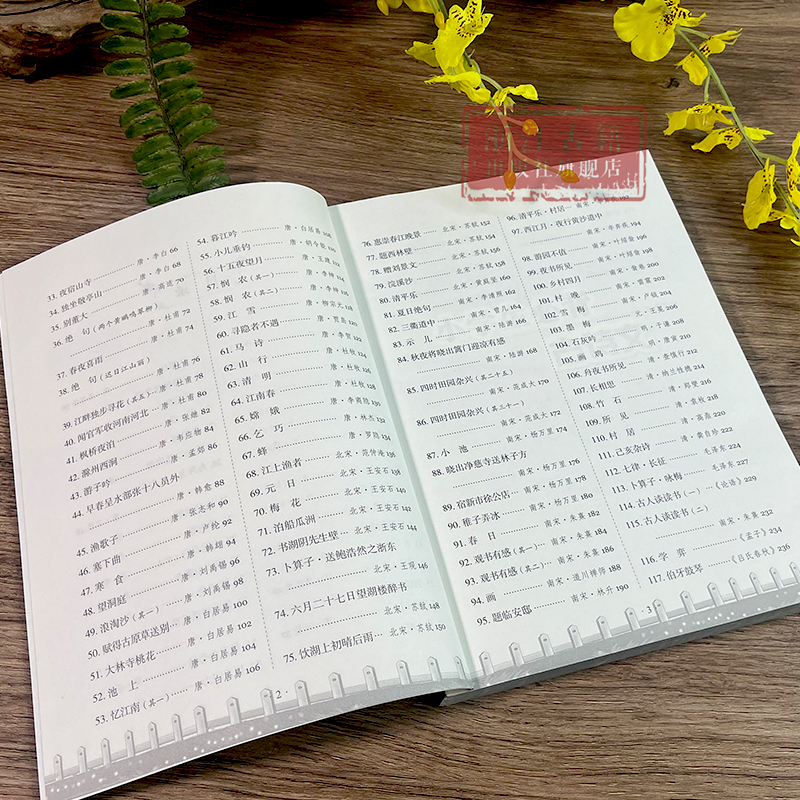 33. 夜宿山寺 唐·李白 66
34. 独坐敬亭山 唐·李白 68
35. 别董大 唐·高适 70
36. 绝 句(两个黄鹂鸣翠柳)
唐·杜甫 72
37. 春夜喜雨 唐·杜甫 74
38. 绝 句(迟日江山丽)
唐·杜甫 76
39. 江畔独步寻花(其五) 唐·杜甫 78
40. 闻官军收河南河北 唐·杜甫 80
41. 枫桥夜泊 唐·张继 82
42. 滁州西涧 唐·韦应物 84
43. 游子吟 唐·孟郊 86
44. 早春呈水部张十八员外
唐·韩愈 88
45. 渔歌子 唐·张志和 90
46. 塞下曲 唐·卢纶 92
47. 寒 食 唐·韩翃 94
48. 望洞庭 唐·刘禹锡 96
49. 浪淘沙(其一) 唐·刘禹锡 98
50. 赋得古原草送别 唐·白居易 100
51. 大林寺桃花 唐·白居易 102
52. 池 上 唐·白居易 104
53. 忆江南(其一) 唐·白居易 106
54. 暮江吟 唐·白居易
55. 小儿垂钓 唐·胡令能
56. 十五夜望月 唐·王建
57. 悯 农(其一) 唐·李绅
58. 悯 农(其二) 唐·李绅
59. 江 雪 唐·柳宗元
60. 寻隐者不遇 唐·贾岛
61. 马 诗 唐·李贺
62. 山 行 唐·杜牧
63. 清 明 唐·杜牧
64. 江南春 唐·杜牧
65. 嫦 娥 唐·李商隐
66. 乞 巧 唐·林杰
67. 蜂 唐·罗隐
68. 江上渔者 北宋·范仲淹
69. 元 日 北宋·王安石
70. 梅 花 北宋·王安石
71. 泊船瓜洲 北宋·王安石
72. 书湖阴先生壁 北宋·王安石
73. 卜算子·送鲍浩然之浙东
北宋·王观 146
74. 六月二十七日望湖楼醉书
北宋·苏轼 148
75. 饮湖上初晴后雨 北宋·苏轼 150
·2·
76. 惠崇春江晚景 北宋·苏轼 152
77. 题西林壁 北宋·苏轼 154
78. 赠刘景文 北宋·苏轼 156
79. 浣溪沙 北宋·苏轼 158
80. 清平乐 北宋·黄庭坚 160
81. 夏日绝句 南宋·李清照 162
82. 三衢道中 南宋·曾几 164
83. 示 儿 南宋·陆游 166
84. 秋夜将晓出篱门迎凉有感
南宋·陆游 168
85. 四时田园杂兴(其二十五)
南宋·范成大 170
86. 四时田园杂兴(其三十一)
南宋·范成大 172
87. 小 池 南宋·杨万里 174
88. 晓出净慈寺送林子方
南宋·杨万里 176
89. 宿新市徐公店 南宋·杨万里 178
90. 稚子弄冰 南宋·杨万里 180
91. 春 日 南宋·朱熹 182
92. 观书有感(其一) 南宋·朱熹 184
93. 观书有感(其二) 南宋·朱熹 186
94. 画 南宋·道川禅师 188
95. 题临安邸 南宋·林升 190
96. 清平乐·村居 南宋·
97. 西江月·夜行黄沙道中
南宋·辛弃疾 194
98. 游园不值 南宋·叶绍翁 196
99. 夜书所见 南宋·叶绍翁 198
100. 乡村四月 南宋·翁卷 200
101. 村 晚 南宋·雷震 202
102. 雪 梅 南宋·卢钺 204
103. 墨 梅 元·王冕 206
104. 石灰吟 明·于谦 208
105. 画 鸡 明·唐寅 210
106. 舟夜书所见 清·查慎行 212
107. 长相思 清·纳兰性德 214
108. 竹 石 清·郑燮 216
109. 所 见 清·袁枚 218
110. 村 居 清·高鼎 220
111. 己亥杂诗 清·龚自珍 222
112. 七律·长征 毛泽东 224
113. 卜算子·咏梅 毛泽东 227
114. 古人谈读书(一) 《论语》 229
115. 古人谈读书(二)
南宋·朱熹 232
116. 学 弈 《孟子》 234
117. 伯牙鼓琴 《吕氏春秋》 236
·3·
浙江古籍
出版社旗舰店